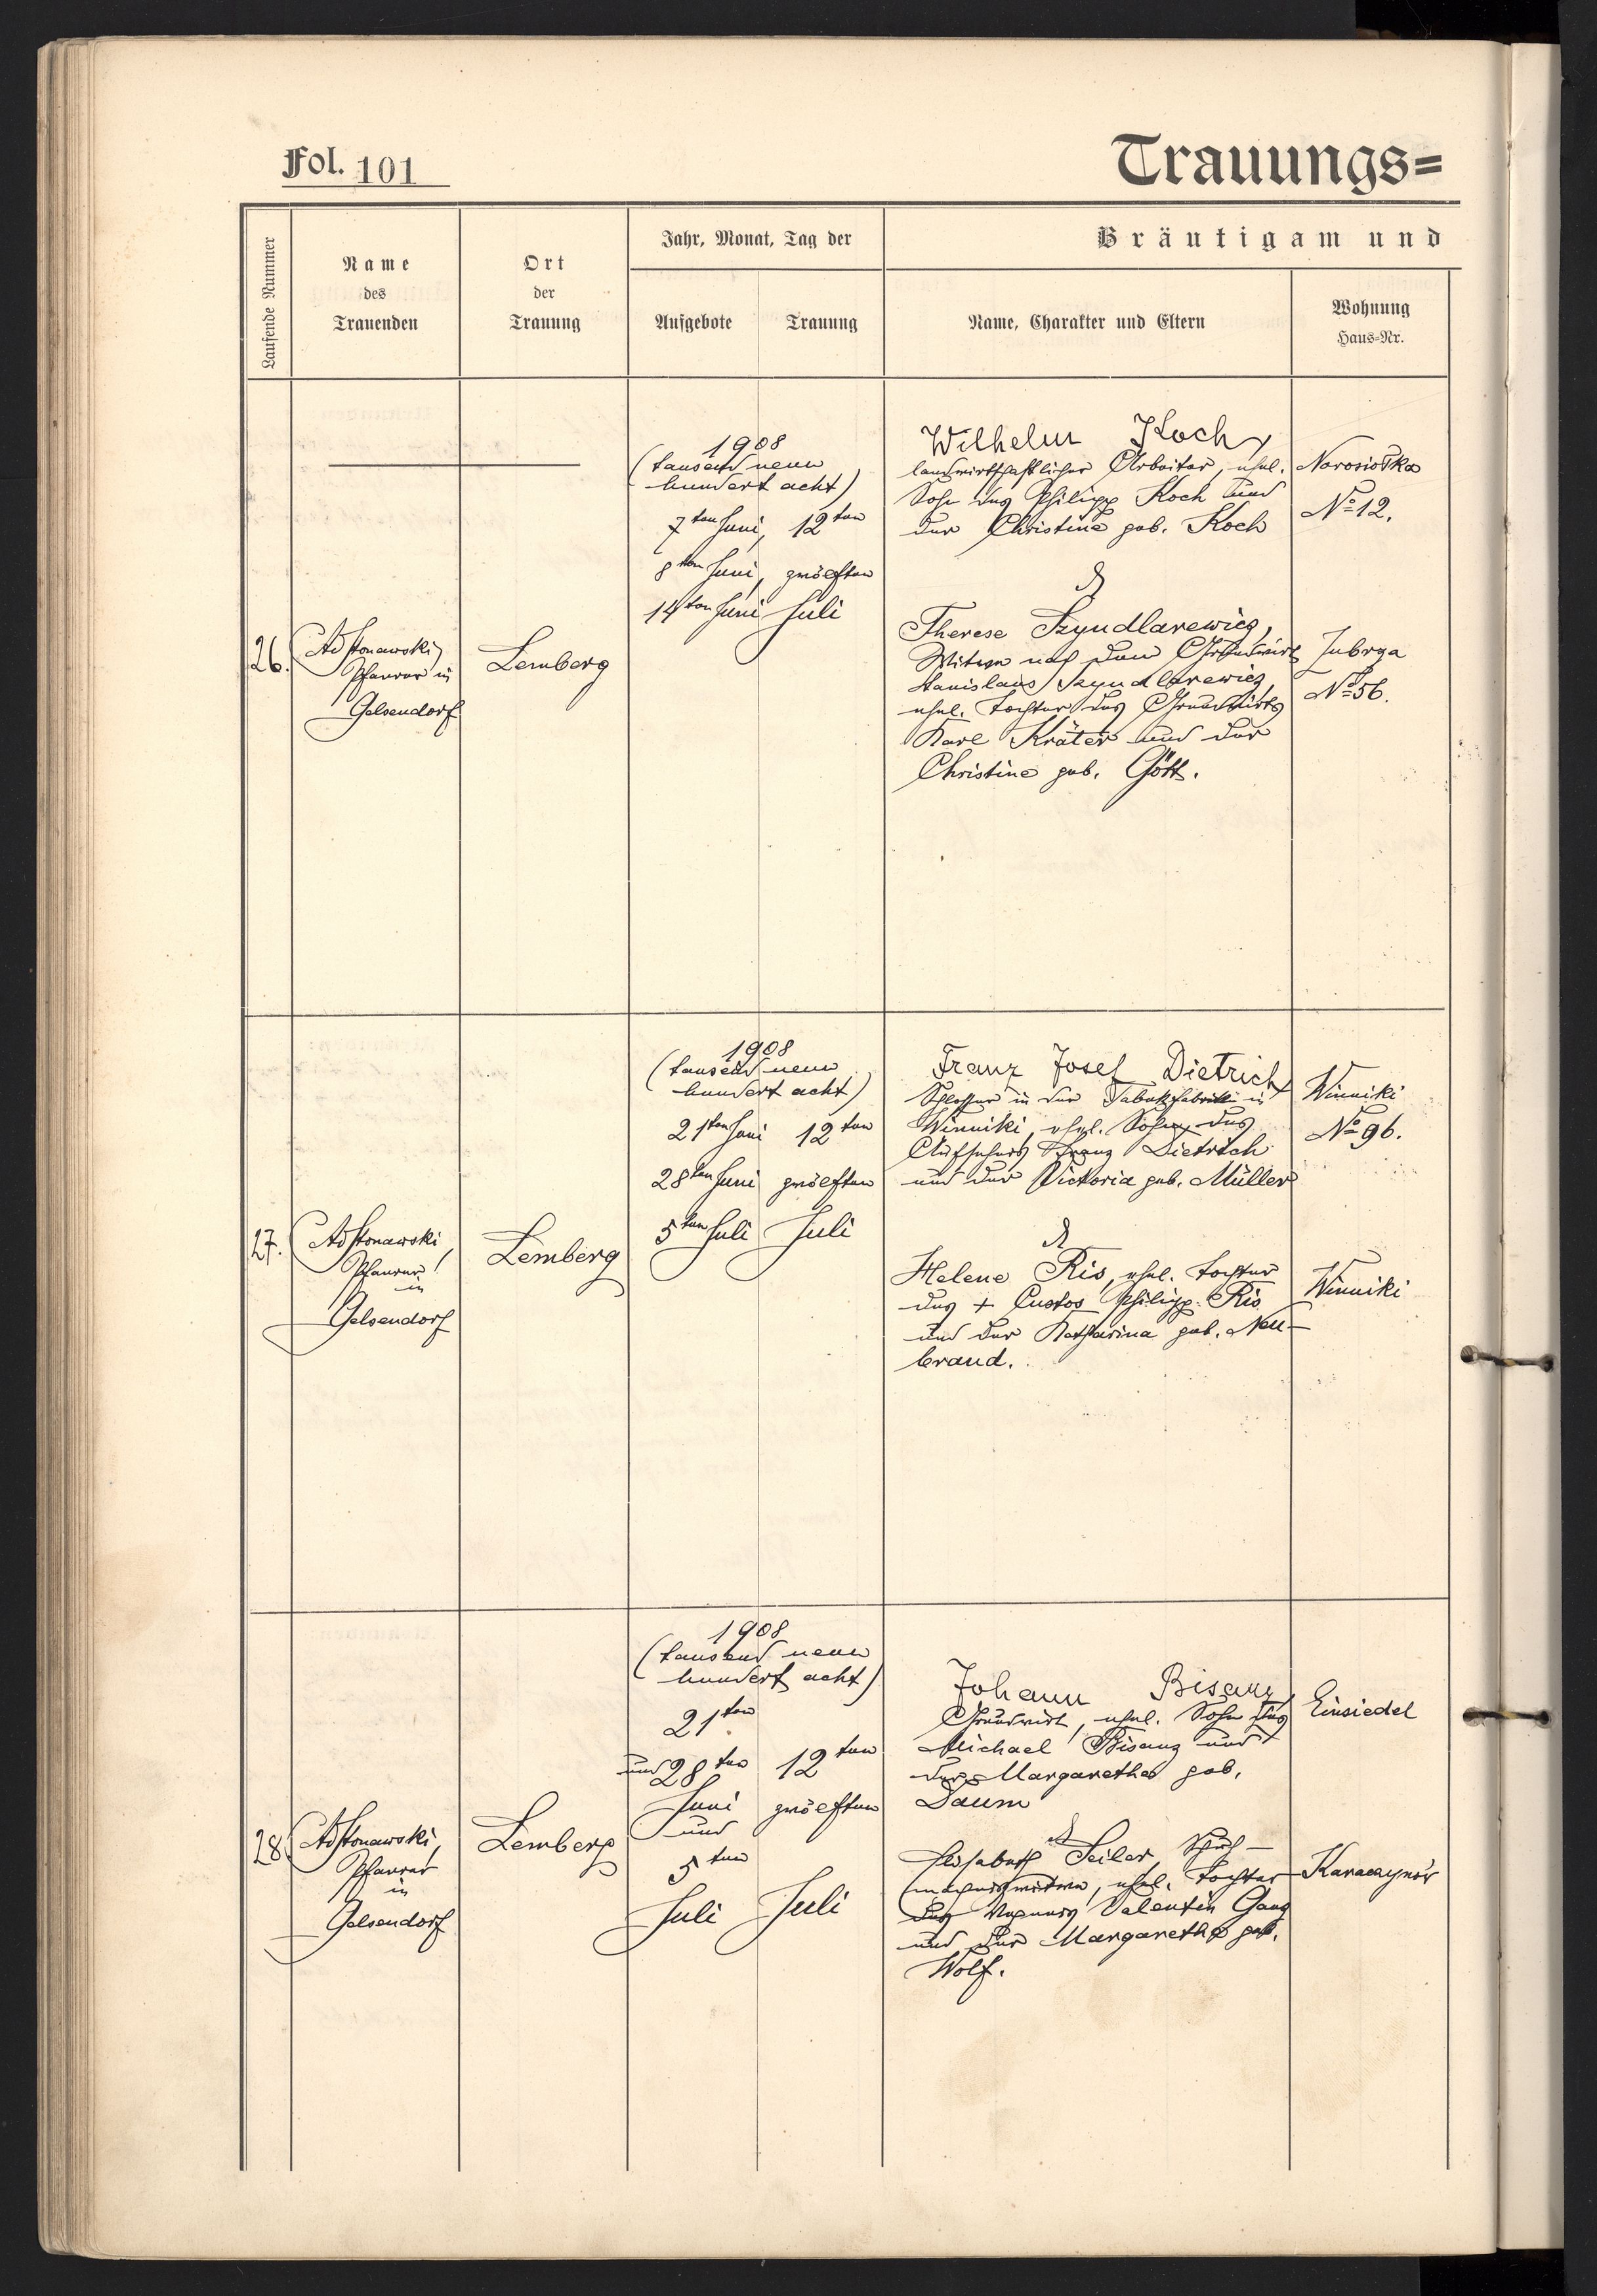 Fol. 101
Trauungs=
Laufende Nummer
Name
des
Trauenden
Ort
der
Trauung
Jahr, Monat, Tag der
Aufgebote
Trauung
Bräutigam und
Name, Charakter und Eltern
Wohnung
Haus-Nr.
26.
Pfarrer in
Gelsendorf
Lemberg
1908
(tausend neun
hundert acht)
7ten Juni, 12ten
8ten Juni, zwölften
14ten Juni Juli
Wilhelm Koch,
landwirthschaftlicher Arbeiter, ehel.
Sohn des Philipp Koch und
der Christine geb. Koch
Norosiółka
No 12.
&
Therese Szyndlarewicz,
Witwe nach dem Grundwirt
Stanislaus Szyndlarewicz
ehel. Tochter des Grundwirts
Karl Kräter und der
Christine geb. Gött.
Zubrza
No 56.
27.
Pfarrer
in
Gelsendorf
Lemberg
1908
(tausend neun
hundert acht)
21ten Juni 12ten
28ten Juni zwölften
5ten Juli Juli
Franz Josef Dietrich
Schlosser in der Tabakfabrik in
Winniki, ehel. Sohn des
Aufsehers Franz Dietrich
und der Victoria geb. Müller
Winniki
No 96.
&
Helene Ris, ehel. Tochter
des + Custos Philipp Ris
und der Katharina geb. Neu-
brand.
Winniki
28.
Pfarrer
in
Gelsendorf
Lemberg
1908
(tausend neun
hundert acht)
21ten
und 28ten 12ten
Juni zwölften
und
5ten
Juli Juli
Johann Bisanz
Grundwirt, ehel. Sohn des
Michael Bisanz und
der Margarethe geb.
Daum
Einsiedel
&
Elisabeth Seiler, Schuh-
macherswitwe, ehel. Tochter
des Valentin Gang
und der Margarethe geb.
Wolf.
Karaczynów